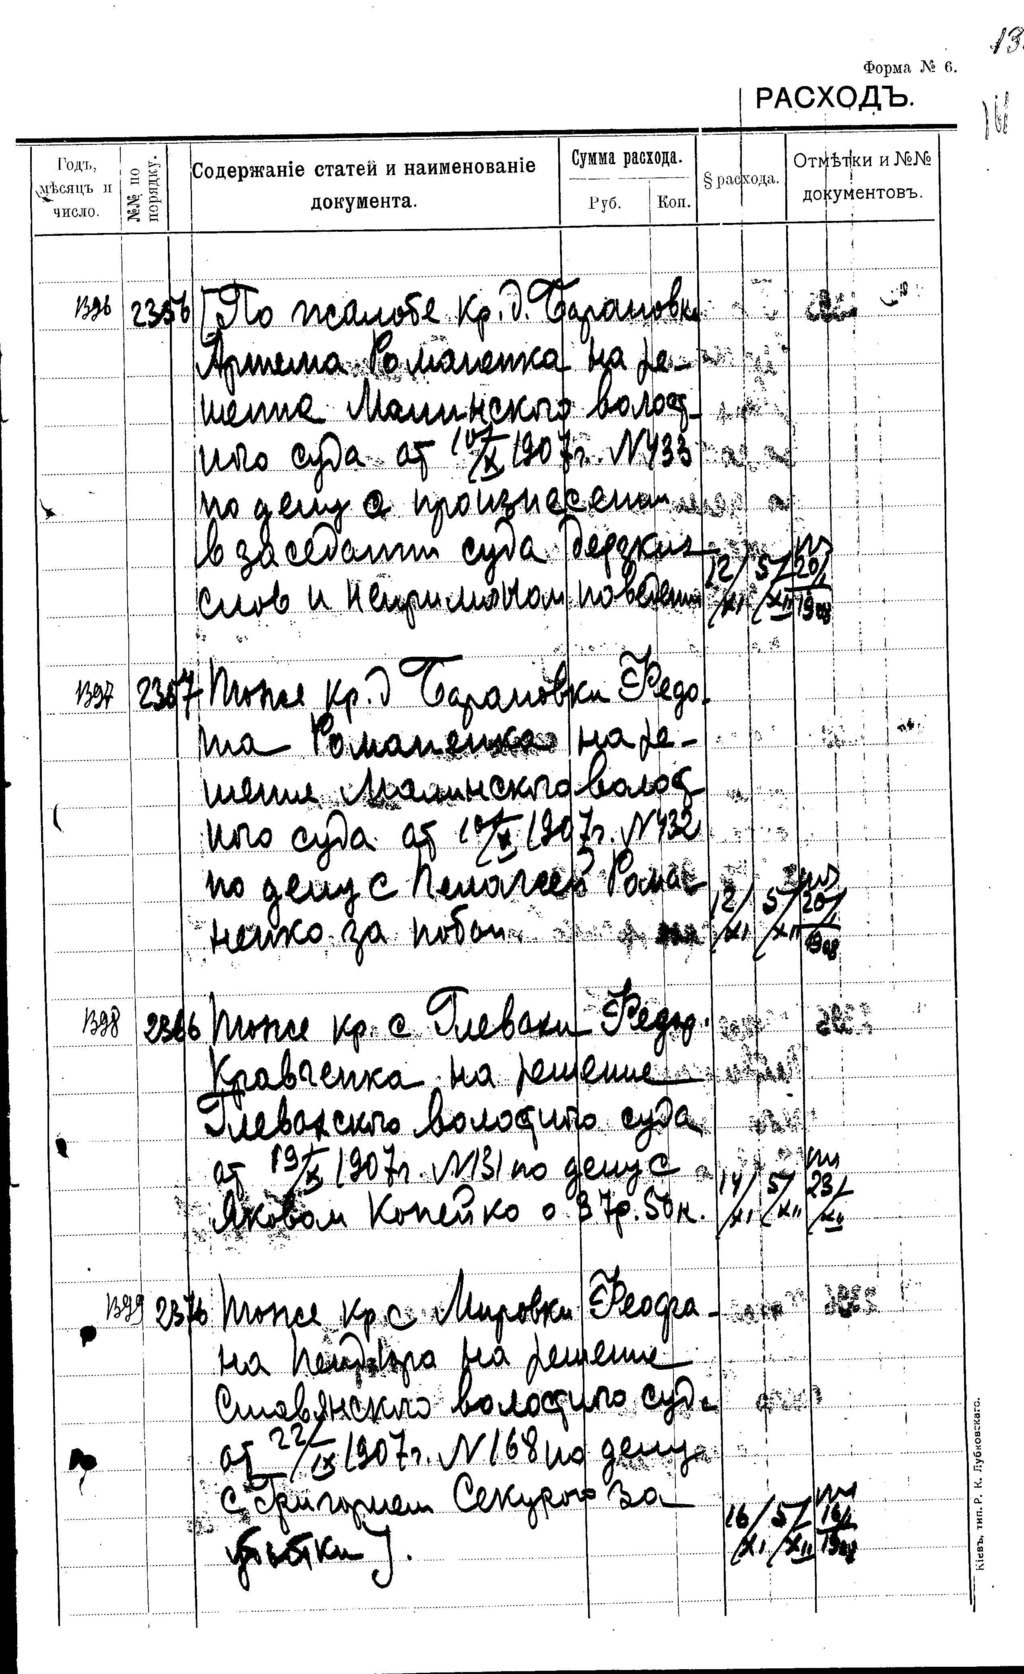 13
Форма № 6.
РАСХОДЪ.
Годъ, мѣсяцъ и число.
№№ по порядку.
Содержаніе статей и наименованіе документа.
Сумма расхода.
Руб.
Коп.
§ расхода.
Отмѣтки и №№ документовъ.
1396 2356 [По жалобе кр. д. Барановки
Артема Романенка на ре-
шение Малинского волост-
ного суда от 10/X 1907 г. N433
по делу о произнесении
в заседании суда дерзких
слов и неприличном поведении
12/XI 5/XII 20/I 1908
1397 2357 Тоже кр. д Барановки Федо-
та Романенка на ре-
шение Малинского волост
ного суда от 10/X 1907 г. N432
по делу с Пелагеей Рома-
ненко за побои.
12/XI 5/XII 20/I 1908
1398 2366 Тоже кр. с. Глеваки Федор.
Кравченка на решение
Глевахского волостного суда
от 19/X 1907 г. N131 по делу с
Яковом Копейко о 37 р. 50 к.
14/XI 5/XII 23/XII
1399 2376 Тоже кр. с. Мировки Феофа-
на на решение
Ставянского волостного суда
от 22/IX 1907 г. N168 по делу
с Григорием Секурою за
убытки].
16/XI 5/XII 16/I 1908
Кіевъ, тип. Р. К. Лубковскаго.